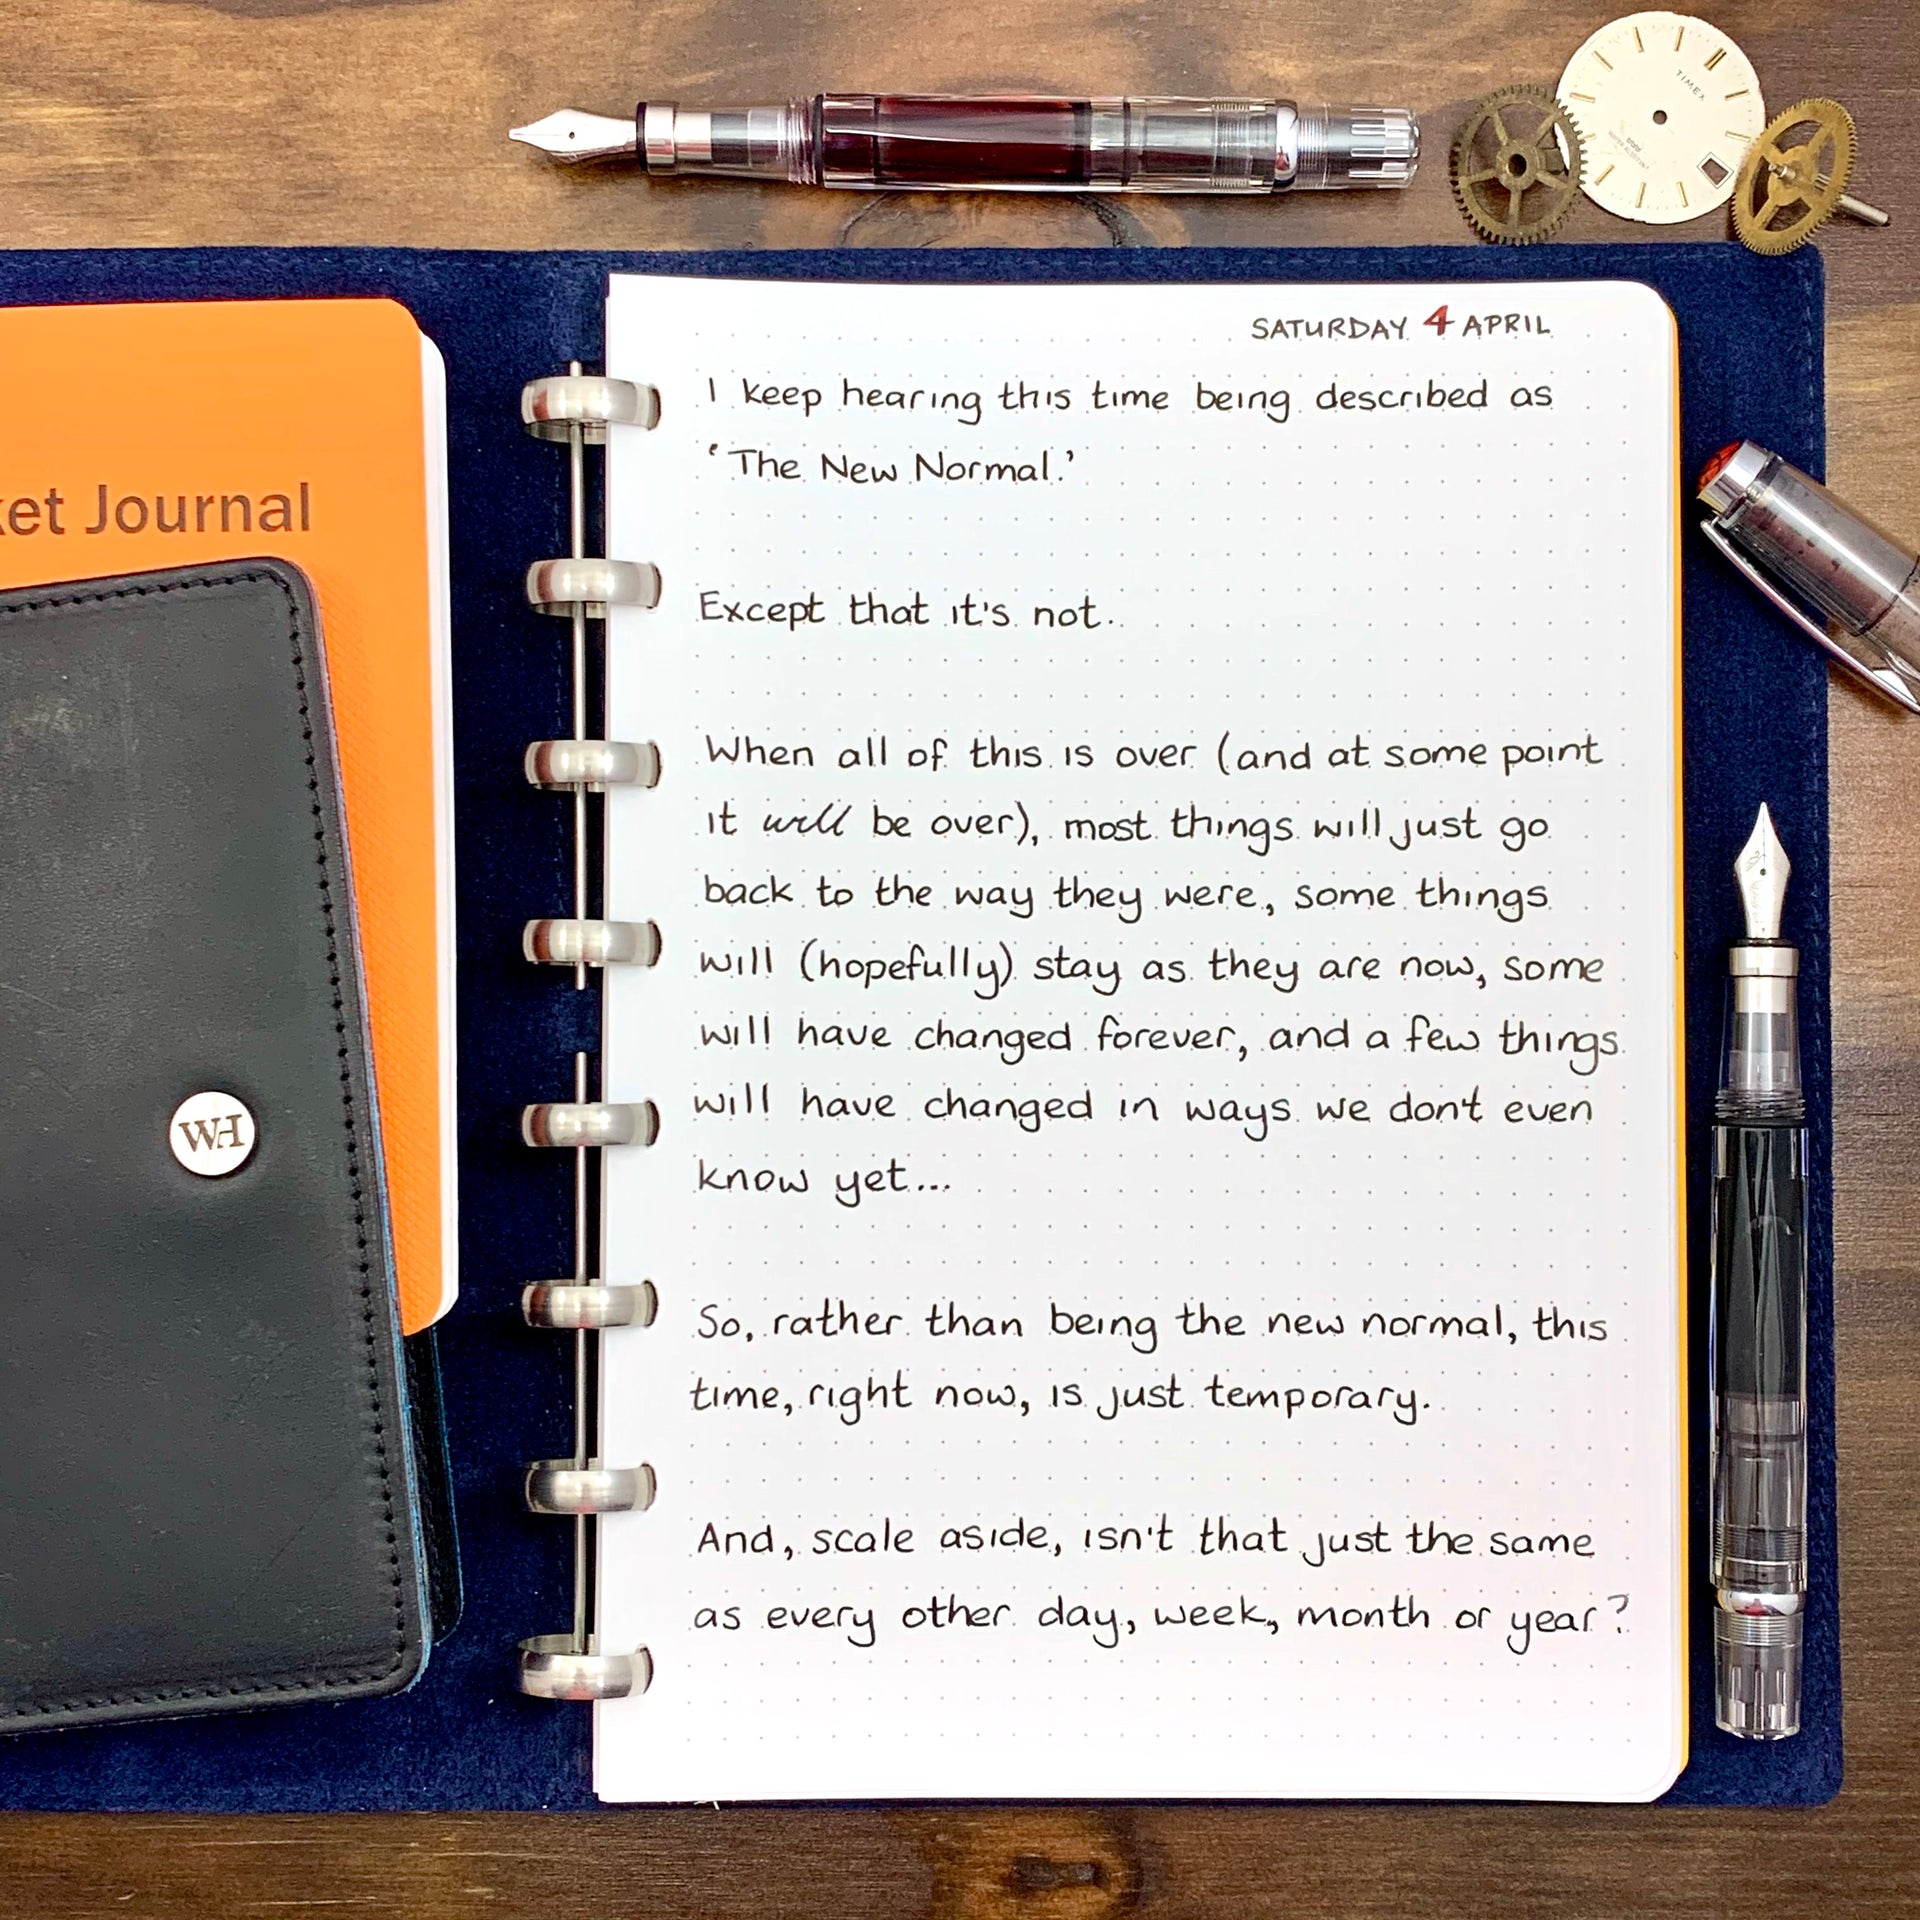 TIMEX
SATURDAY 4 APRIL
I keep hearing this time being described as
'The New Normal.'
Except that it's not.
When all of this is over (and at some point
it will be over), most things will just go
back to the way they were, some things
will (hopefully) stay as they are now, some
will have changed forever, and a few things
will have changed in ways we don't even
know yet...
So, rather than being the new normal, this
time, right now, is just temporary.
And, scale aside, isn't that just the same
as every other day, week, month or year?
ket Journal
WH